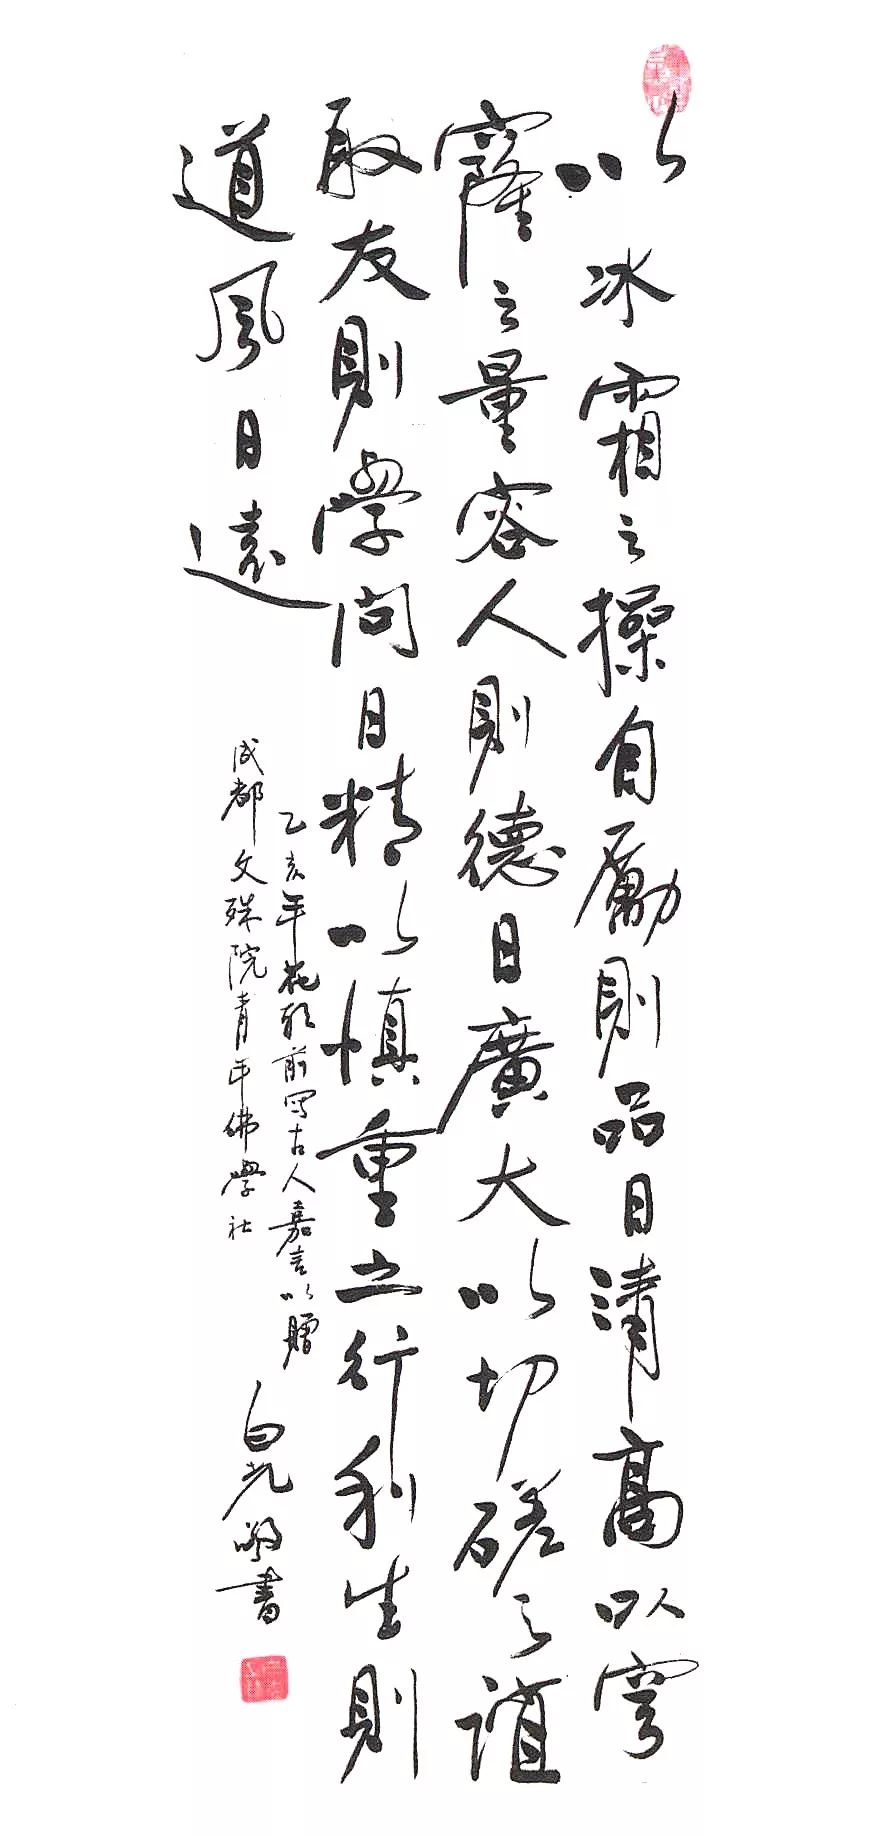 以冰霜之操自勵則品日清高以穹
窿之量容人則德日廣大以切磋之誼
取友則學問日精以慎重之行利生則
道風日遠
乙亥年花朝前寫古人嘉言以贈
成都文殊院青年佛學社
白光敬書